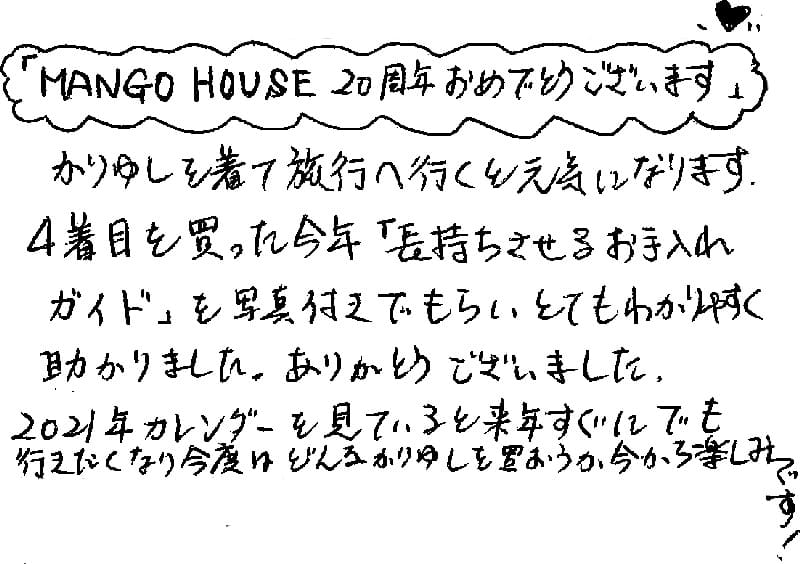 「MANGO HOUSE 20周年おめでとうございます」
かりゆしを着て旅行へ行くと元気になります.
4着目を買った今年「長持ちさせるお手入れ
ガイド」を写真付きでもらいとてもわかりやすく
助かりました。ありがとうございました.
2021年カレンダーを見ていると来年すぐにでも
行きたくなり今度はどんなかりゆしを買おうか今から楽しみです!